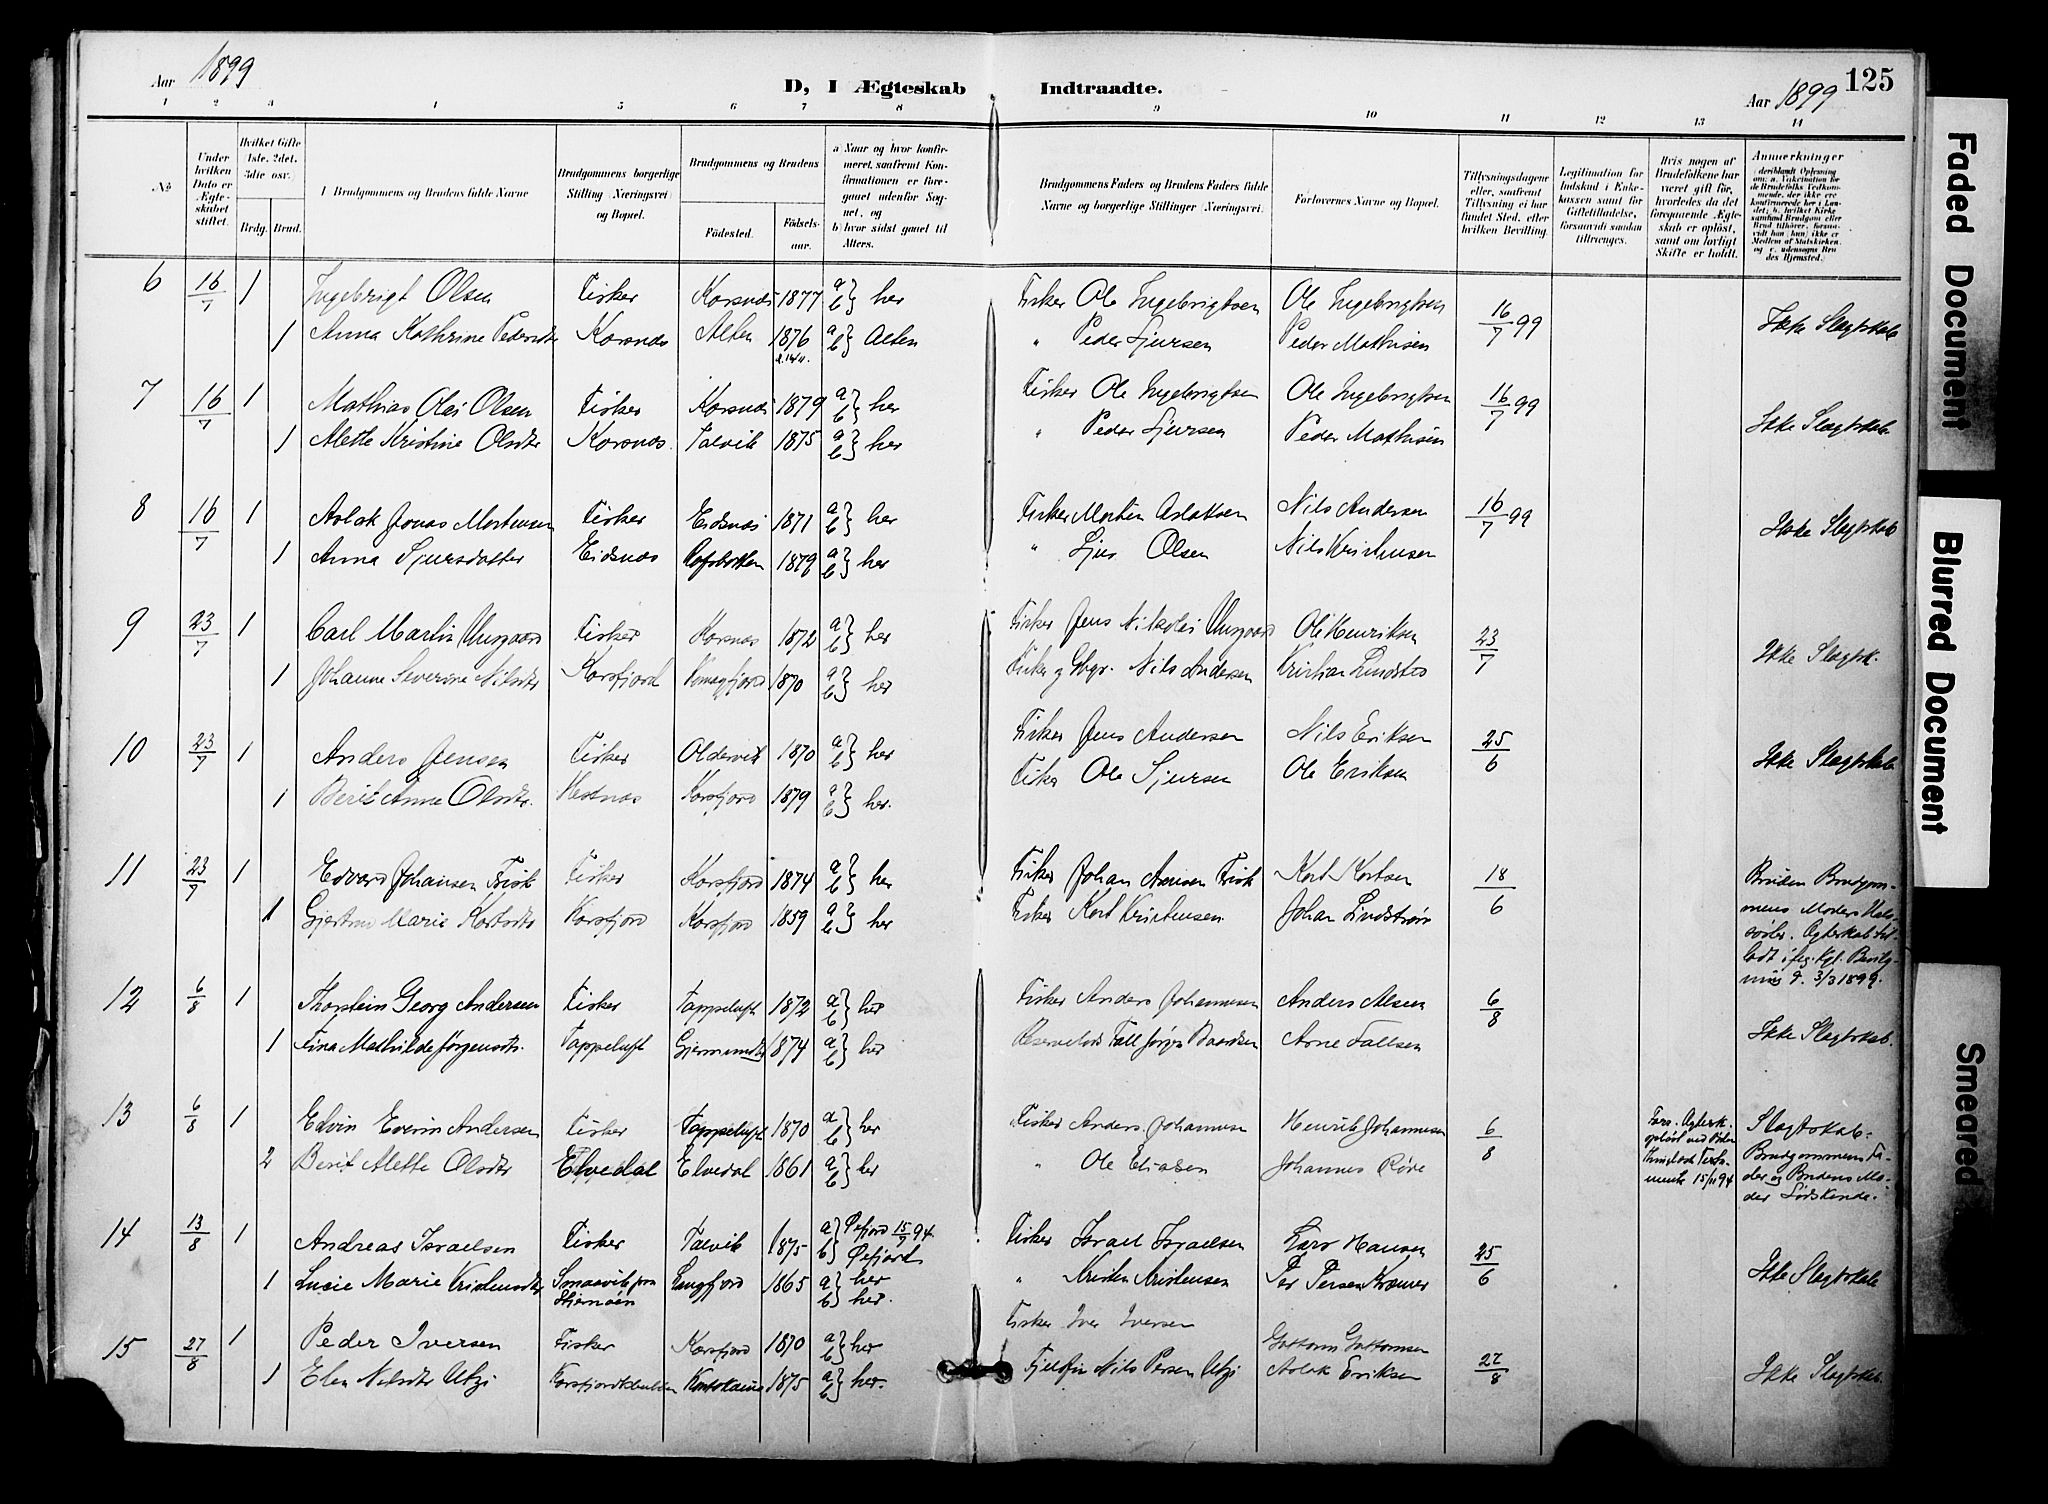 Aar 1899
D, I Ægteskab Indtraadte.
Aar 1899 125
1 2 3 4 5 6 7 8 9 10 11 12 13 14
No
Under hvilken Dato er Ægteskabet stiftet.
Hvilket Gifte 1ste. 2det. 3die osv.
Brdg. Brud.
Brudgommens og Brudens fulde Navne
Brudgommens borgerlige Stilling (Næringsvei) og Bopæl.
Brudgommens og Brudens
Födested. Födselsaar.
a) Naar og hvor konfirmeret, saafremt Konfirmationen er foregaaet udenfor Sognet, og
b) hvor sidst gaaet til Alters.
Brudgommens Faders og Brudens Faders fulde Navne og borgerlige Stillinger (Næringsvei)
Forlovernes Navne og Bopæl.
Tillysningsdagene eller, saafremt Tillysning ei har fundet Sted, efter hvilken Bevilling.
Legitimation for Indskud i Enkekassen samt for Giftetilladelse, forsaavidt saadan tiltrænges.
Hvis nogen af Brudefolkene har været gift för, hvorledes da det foregaaende Ægteskab er oplöst, samt om lovligt Skifte er holdt.
Anmærkninger
6 16/7 1 Ingebrigt Olsen Fisker Korsnæs 1877 a b} her Fisker Ole Ingebrigtsen Ole Ingebrigtsen 16/7 99 Ikke Slægtskab
1 Anna Kathrine Pedersdtr Korsnæs Alten 1876 a b} Alten " Peder Sjursen Peder Mathisen
7 16/7 1 Mathias Olai Olsen Fisker Korsnæs 1879 a b} her Fisker Ole Ingebrigtsen Ole Ingebrigtsen 16/7 99 Ikke Slægtskab
1 Alette Kristine Olsdtr Korsnæs Talvik 1875 a b} her " Peder Sjursen Peder Mathisen
8 16/7 1 Aslak Jonas Mortensen Fisker Eidsnæs 1871 a b} her Fisker Morten Aslaksen Nils Andersen 16/7 99 Ikke Slægtskab
1 Anna Sjursdatter Eidsnæs Rafsbotten 1879 a b} her " Sjur Olsen Nils Kristensen
9 23/7 1 Carl Martin Fisker Korsnæs 1872 a b} her Fisker Jens Nikolai Ole Henriksen 23/7 Ikke Slægtsk.
1 Johanne Severine Nilsdtr Korsfjord Komagfjord 1870 a b} her Fisker og Gbgr. Nils Andersen Kristian
10 23/7 1 Anders Jensen Fisker Oldervik 1870 a b} her Fisker Jens Andersen Nils Eriksen 25/6 Ikke Slægtskab
1 Berit Anne Olsdtr. Korsfjord 1879 a b} her. Fisker Ole Sjursen Ole Eriksen
11 23/7 1 Edvard Johansen Frisk Fisker Korsfjord 1874 a b} her Fisker Johan Frisk Kort Kortsen 18/6 Bruden Brudgommens Moders Halvsöster. Ægteskab tilladt ifög. Kgl. Bevilg- d. 3/3 1899.
1 Marie Kortsdtr Korsfjord Korsfjord 1859 a b} her Fisker Kort Kristensen Johan Lindström
12 6/8 1 Thorstein Georg Andersen Fisker Tappeluft 1872 a b} her Fisker Anders Johannesen Anders Alsen 6/8
1 Fina Mathilde Jörgensdtr. Tappeluft 1874 a b} her Jörgen Baardsen Arne Fallsen Ikke Slægtskab.
13 6/8 1 Edvin Evenn Andersen Fisker Tappeluft 1870 a b} her Fisker Anders Johannesen Henrik Johannesen 6/8 Slægtskab: Brudgommens Fader og Brudens Moder Södskende.
2 Berit Alette Olsdtr Elvedal Elvedal 1861 a b} her " Ole Eliasen Johannes Röde 15/11 94
14 13/8 1 Andreas Israelsen Fisker Talvik 1875 a b} Öxfjord 15/7 94. Öxfjord Fisker Israel Israelsen Lars Hansen 25/6
1 Lucie Marie Kristensdtr Smaavik paa Stjernöen Langfjord 1865 a b} her her. " Kristen Kristensen Per Persen Kræmer Ikke Slægtskab
15 27/8 1 Peder Iversen Fisker Korsfjord 1870 a b} her Fisker Iver Iversen Guttorm Guttormsen 27/8
1 Elen Nilsdtr Utzi 1875 a b} her. Nils Persen Utzi Aslak Eriksen Ikke Slægtskab.
Faded Document
Blurred Document
Smeared